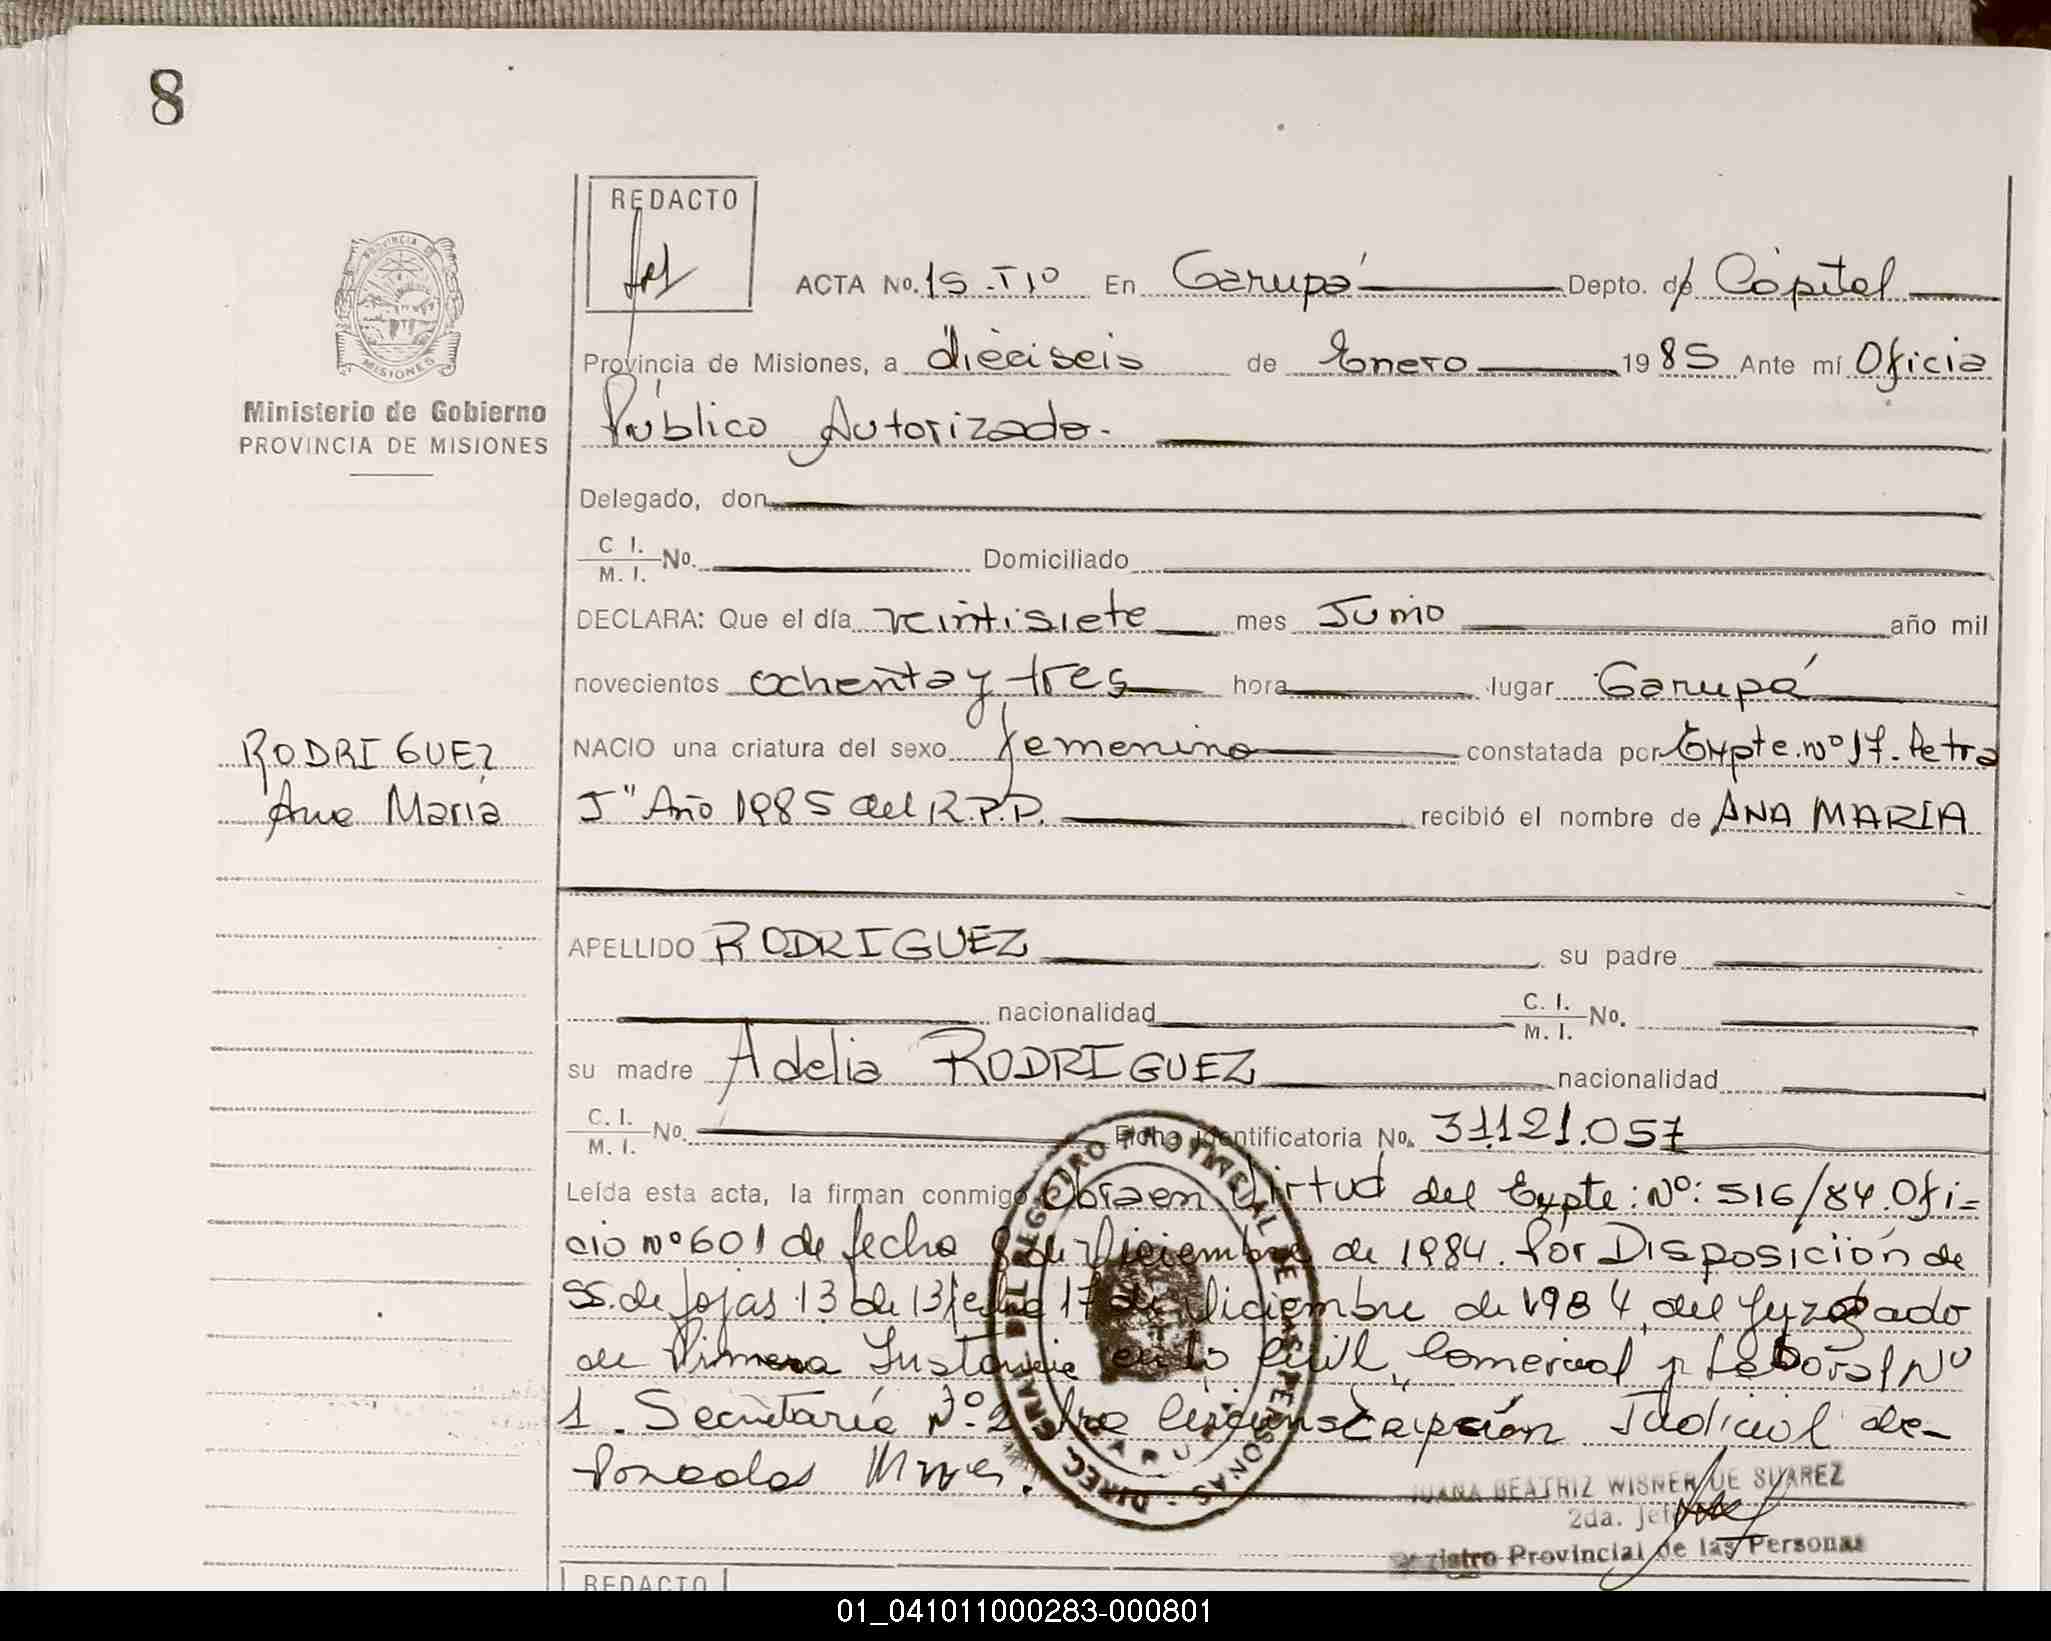 8
REDACTO
PROVINCIA DE
MISIONES
Ministerio de Gobierno
PROVINCIA DE MISIONES
ACTA No. 15-Tº En Garupá Depto. d Capital
Provincia de Misiones, a dieciseis de Enero 1985 Ante mí Oficia
Público Autorizado.-
Delegado, don
C I. / M. I. No. Domiciliado
DECLARA: Que el día veintisiete mes Junio año mil
novecientos ochenta y tres hora lugar Garupá
NACIO una criatura del sexo femenino constatada por Expte. nº 17. Letra
J" Año 1985 del R.P.P. recibió el nombre de ANA MARIA
RODRIGUEZ
Ana María
APELLIDO RODRIGUEZ su padre
nacionalidad C. I. / M. I. No.
su madre Adelia RODRIGUEZ nacionalidad
C. I. / M. I. No. Ficha identificatoria No. 31.121.057
Leída esta acta, la firman conmigo Obra en virtud del Expte: Nº: 516/84. Ofi=
cio nº 601 de fecha de Diciembre de 1984. Por Disposición de
SS. de fojas 13 de fecha 17 de Diciembre de 1984 del Juzgado
de Primera Instancia en lo Civil, Comercial y Laboral Nº
1. Secretaría Nº 2 1ra Circunscripción Judicial de-
Posadas Mnes.
DIREC. GRAL. DEL REGISTRO PROVINCIAL DE LAS PERSONAS
GARUPA
JUANA BEATRIZ WISNER DE SUAREZ
2da. Jefe
Registro Provincial de las Personas
REDACTO
01_041011000283-000801